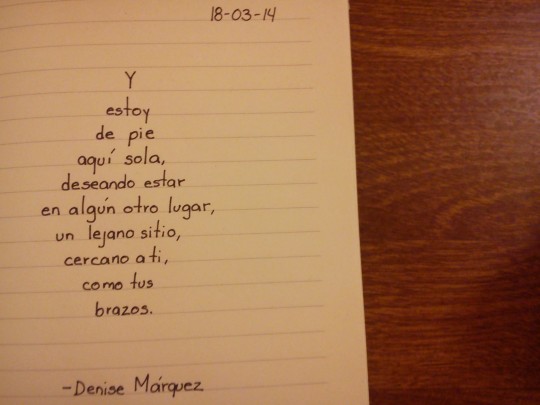 18-03-14
Y
estoy
de pie
aquí sola,
deseando estar
en algún otro lugar,
un lejano sitio,
cercano a ti,
como tus
brazos.
-Denise Márquez